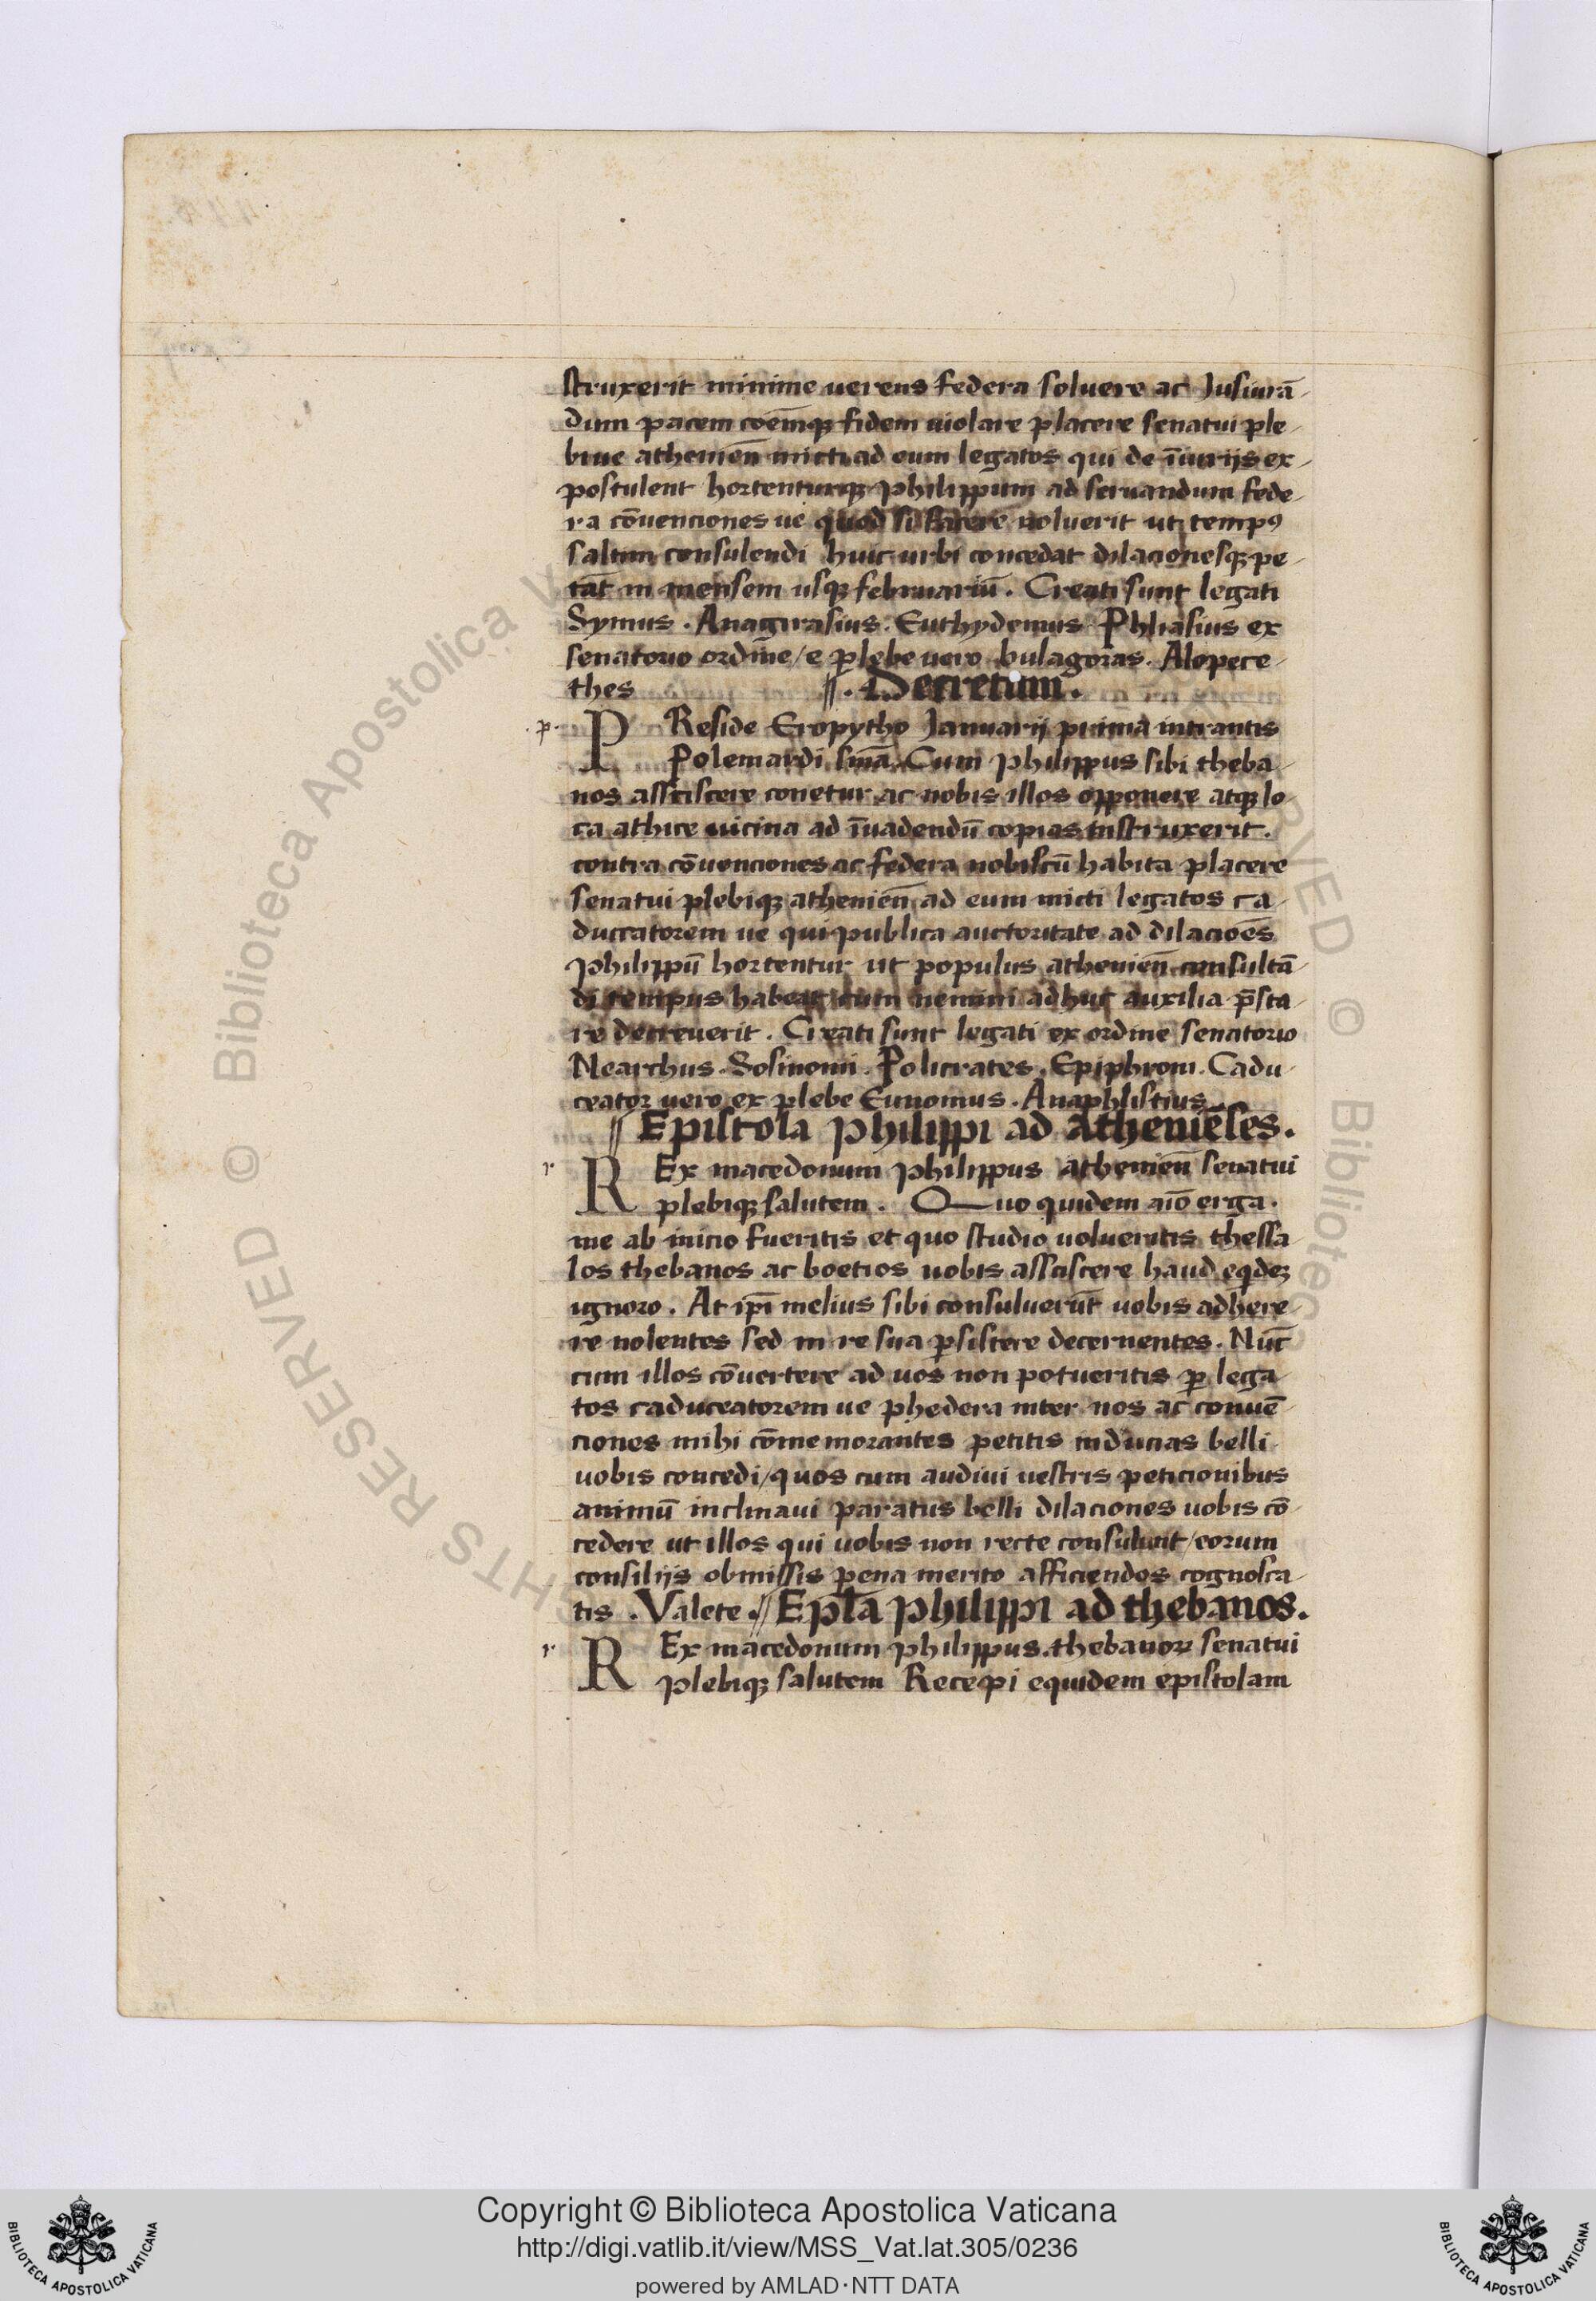 struxerit minime uerens federa soluere ac Jusiurā-
dum pacem coēmqꝫ fidem uiolare placere senatui ple-
biue atheniēn micti ad eum legatos qui de īiurijs ex-
postulent hortenturqꝫ philippum ad seruandum fede-
ra cōuenciones ue quod si facere noluerit ut tempꝰ
saltim consulendi huic urbi concedat dilacionesqꝫ pe-
tāt in mensem usqꝫ februariū. Creati sunt legati
Symus. Anagirasius. Euthydemus Phliasius ex
senatorio ordine/ e plebe uero bulagoras. Alopece-
thes ⸗.Decretum.
.p. P Reside Eropytho Januarij prima intrantis
Polemardi snīa. Cum philippus sibi theba-
nos assciscere conetur ac nobis illos opponere atqꝫ lo-
ca athice uicina ad īuadendū copias instruxerit.
contra cōuenciones ac federa nobiscū habita placere
senatui plebiqꝫ atheniēn ad eum micti legatos ca-
duceatorem ue qui publica auctoritate ad dilacioēs
philippū hortentur ut populus atheniēn consultā-
di tempus habeat cum nemini adhuc auxilia p̄sta-
re decreuerit. Creati sunt legati ex ordine senatorio
Nearchus. Sosinomi. Policrates. Epiphroni. Cadu-
ceator uero ex plebe Eunomus. Anaphlistius.
⸗Epistola philippi ad atheniēses.
r R Ex macedonum philippus atheniēn senatui
plebiqꝫ salutem. Quo quidem aīo erga.
me ab inicio fueritis et quo studio uolueritis thessa-
los thebanos ac boetios uobis assciscere haud eqͥdeꝫ
ignoro. At ip̄i melius sibi consuluerūt uobis adhere-
re nolentes sed in re sua ꝑsistere decernentes. Nūc
cum illos cōuertere ad uos non potueritis ꝑ lega-
tos caduceatorem ue phedera inter nos ac conuē-
ciones mihi cōmemorantes petitis inducias belli
uobis concedi/ quos cum audiui uestris peticionibus
animū inclinaui paratus belli dilaciones uobis cō-
cedere ut illos qui uobis non recte consulunt/ eorum
consilijs obmissis pena merito afficiendos cognosca-
tis. Valete.⸗Epl̄a philippi ad thebanos.
r R Ex macedonum philippus. thebanoꝝ senatui
plebiqꝫ salutem Recepi equidem epistolam
Copyright © Biblioteca Apostolica Vaticana
http://digi.vatlib.it/view/MSS_Vat.lat.305/0236
powered by AMLAD·NTT DATA